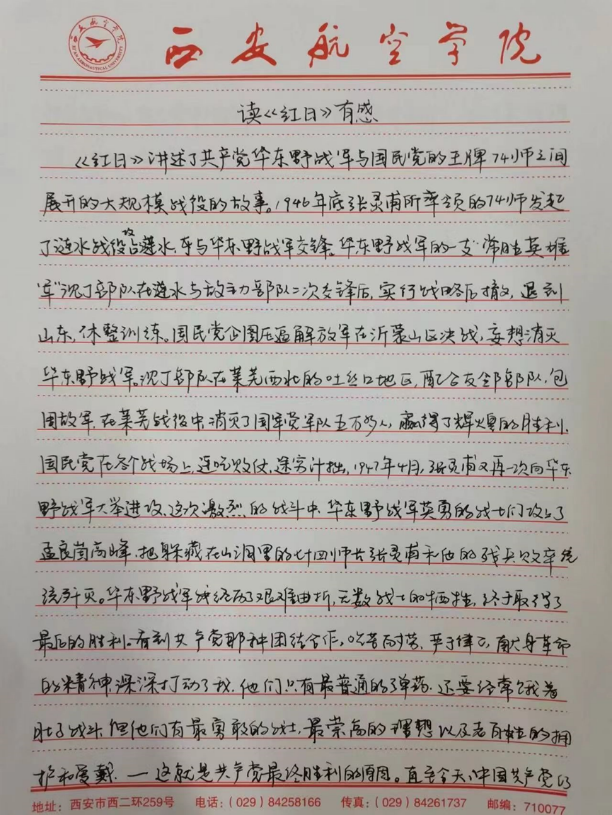 西安航空学院
读《红日》有感
《红日》讲述了共产党华东野战军与国民党的王牌74师之间
展开的大规模战役的故事。1946年底张灵甫所率领的74师发起
了涟水战役攻占涟水，与华东野战军交锋。华东野战军的一支"常胜英雄
军"沈丁部队在涟水与敌主力部队二次交锋后，实行战略后撤，退到
山东，休整训练。国民党企图压逼解放军在沂蒙山区决战，妄想消灭
华东野战军。沈丁部队在莱芜西北的吐丝口地区，配合友邻部队，包
围敌军在莱芜战役中消灭了国军党军队五万多人，赢得了辉煌的胜利，
国民党在各个战场上，连吃败仗，途穷计拙，1947年4月，张灵甫又再一次向华东
野战军大举进攻。这次激烈的战斗中，华东野战军英勇的战士们攻上了
孟良崮高峰，把躲藏在山洞里的七十四师长张灵甫和他的残兵败卒统
统歼灭。华东野战军战经历了艰难曲折，无数战士的牺牲，终于取得了
最后的胜利。看到共产党那种团结合作，吃苦耐劳，严于律己，献身革命
的精神深深打动了我。他们只有最普通的弹药，还要经常饿着
肚子战斗，但他们有最勇敢的战士，最崇高的理想以及老百姓的拥
护和爱戴，——这就是共产党最终胜利的原因。直至今天，中国共产党的
地址：西安市西二环259号 电话：（029）84258166 传真：（029）84261737 邮编：710077